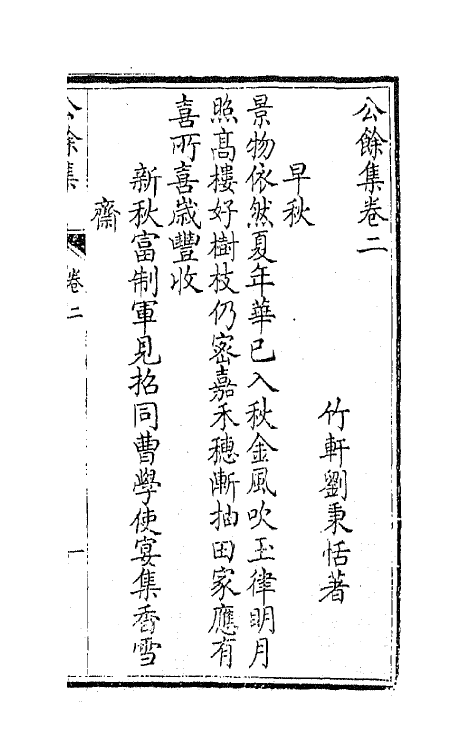 公餘集卷二
竹軒劉秉恬著
早秋
景物依然夏年華已入秋金風吹玉律明月
照高樓好樹枝仍密嘉禾穗漸抽田家應有
喜所喜嵗豐收
新秋富制軍見招同曹學使宴集香雪
齋
公餘集
卷二
一